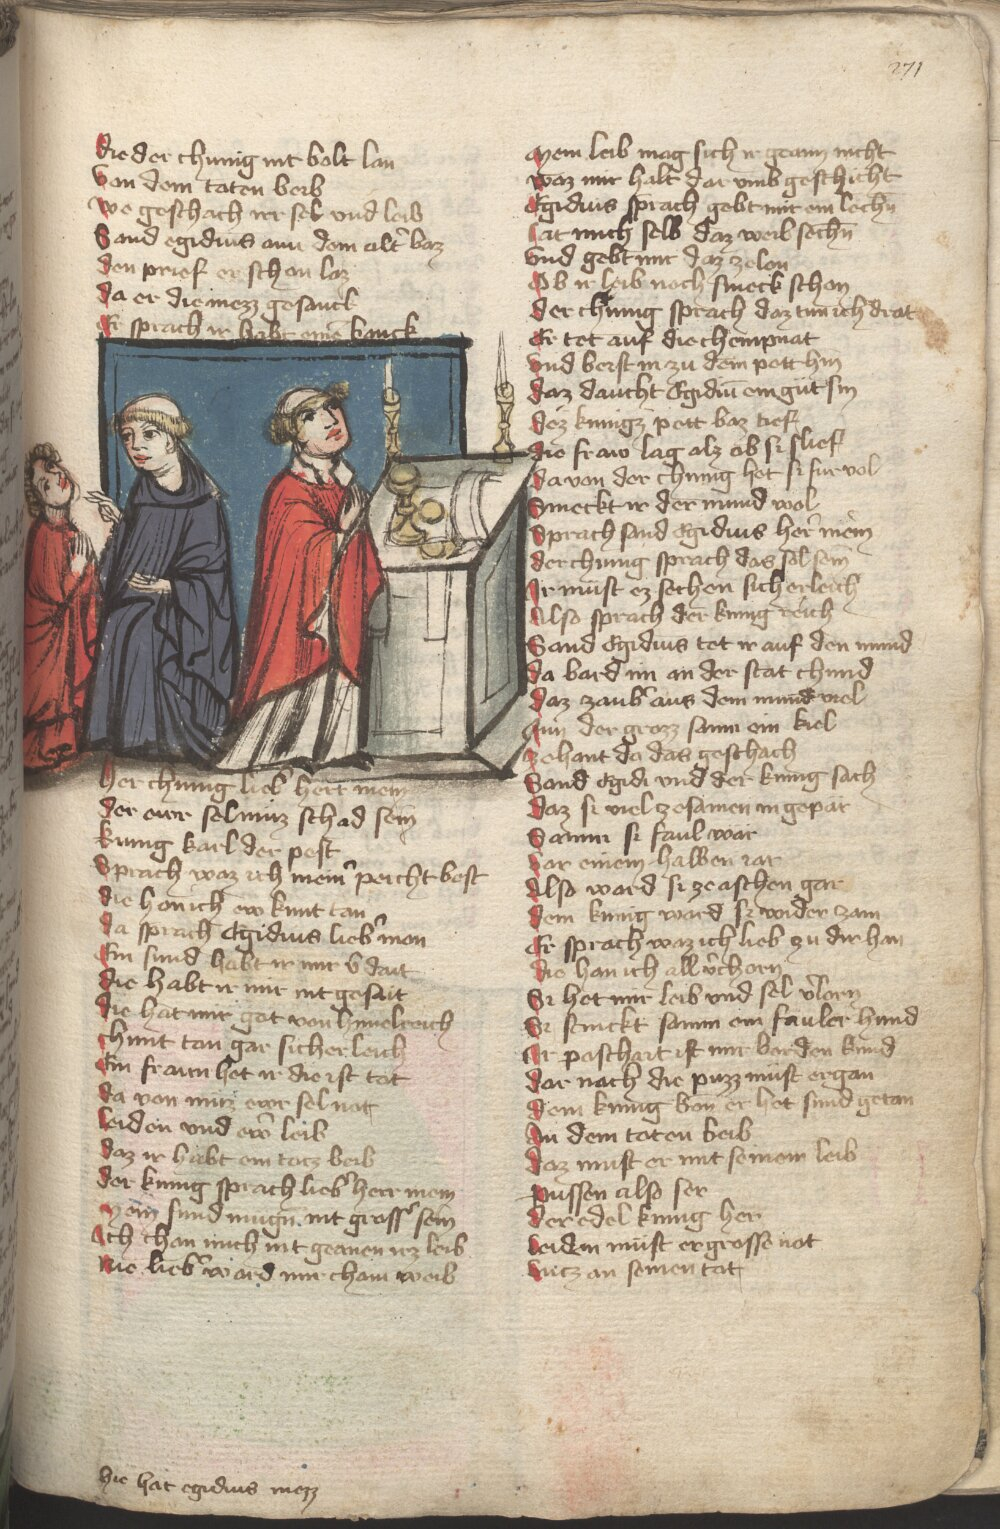 271
die der chunig nit bolt lan
Von dem taten beib
we geschach irr sel vnd leib
Sand egidius auu dem alt͛ baz
den prief er schon laz
da er die mezz gesanck
Er sprach ir habt eine͂ banck
Her chunig lieb͛ herr mein
der ewr sel muz schad sein
kunig karl der pest
Sprach waz ich mein͛ peicht best
die hon ich ew kunt tan
da sprach Egidius lieb͛ man
Ein sund habt ir mir v͛dait
die habt ir mir nit gesait
die hat mir got von himelreich
chunt tan gar sicherleich
Ein fraun het ir die ist tot
da von muz ewr sel not
leiden vnd ew͛ leib
daz ir habt ein tacz beib
der kunig sprach lieb͛ herr mein
mein sund mugn̄ nit gross͛ sein
Ich chan mich nit geanen irz leib
nie lieb͛ ward mir chain weib
Mein leib mag sich ir geann nicht
waz mir halt dar vmb geschicht
Egidius sprach gebt mir ein lechn̄
lat mich selb daz weib sechn̄
vnd gebt mir daz zelon
Ob ir leib noch smeck schon
der chunig sprach daz tun ich drat
Er tet auf die chempnat
vnd berst in zu dem pett hin
daz daucht Egidiu͂ ein gut sin
dez kunigz pett baz tief
die fraw lag alz ob si slief
da von der chunig het si fur vol
Smeckt ir der mund wol
Sprach sand Egidius her͛ mein
der chunig sprach das sol sein
Ir müst ez sechen sicherleich
Also sprach der kunig reich
Sand Egidius tet ir auf den mund
da bard im an der stat chund
daz zaub͛ aus dem mund viel
Inn der grozz samm ein kiel
zehant do das geschach
Sand Egidi vnd der kunig sach
daz si viel zesamen in gepär
Samm si faul wär
vor einem halben iar
Also ward si ze aschen gar
dem kunig ward si wider zam
Er sprach waz ich lieb zu dir han
die han ich all v͛chorn
Si het mir leib vnd sel v͛lorn
Si stinckt samm ein fauler hund
Ir paschart ist mir borden kund
dar nach die puzz müst ergan
dem kunig bon er het sund getan
An dem toten beib
daz must er mit seinem leib
pussen also ser
der edel kunig her
leiden müst er grosse not
vncz an seinen tat
hie hat egidius mezz